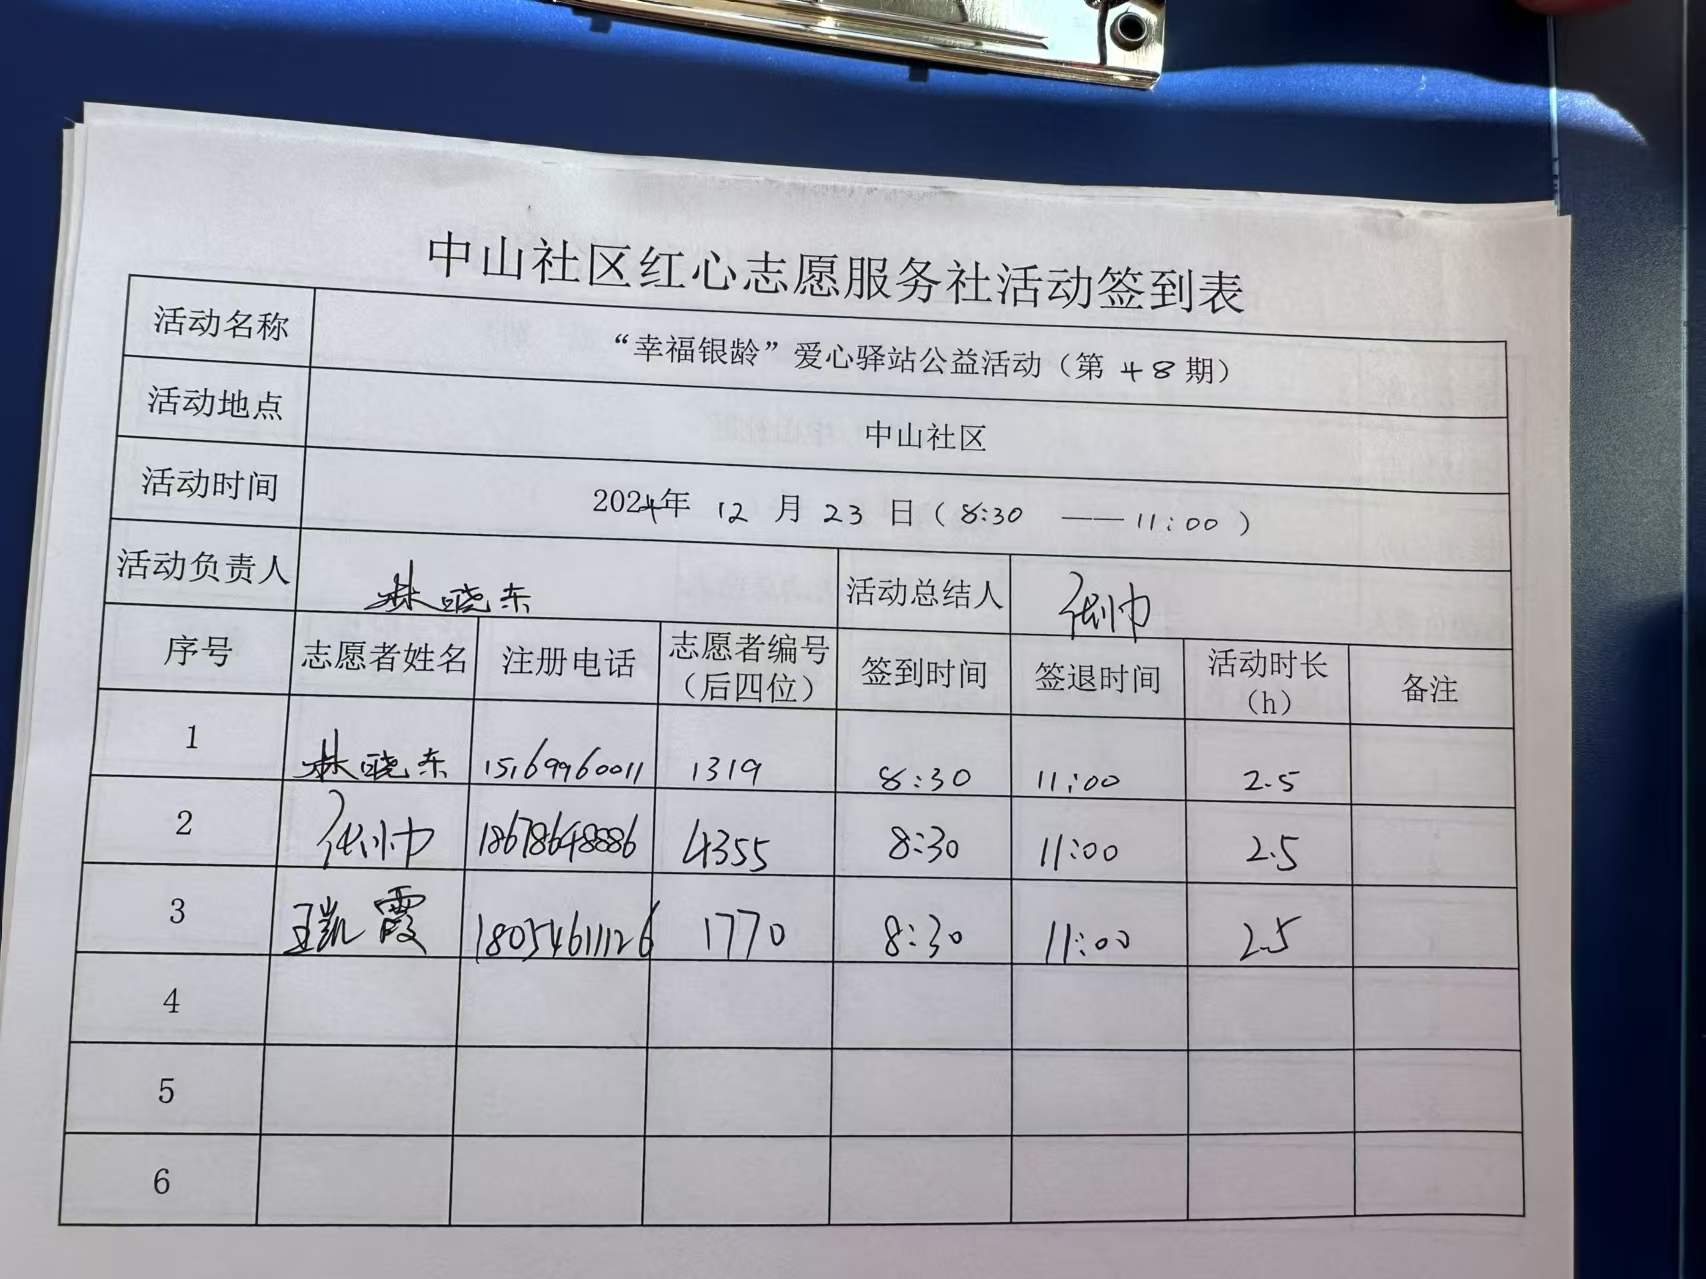 中山社区红心志愿服务社活动签到表
活动名称 “幸福银龄”爱心驿站公益活动（第 48 期）
活动地点 中山社区
活动时间 2024年 12 月 23 日（ 8:30 —— 11:00 ）
活动负责人 林晓东 活动总结人
序号 志愿者姓名 注册电话 志愿者编号（后四位） 签到时间 签退时间 活动时长（h） 备注
1 林晓东 15169960011 1319 8:30 11:00 2.5
2 18678648886 4355 8:30 11:00 2.5
3 王凯霞 18054611126 1770 8:30 11:00 2.5
4
5
6